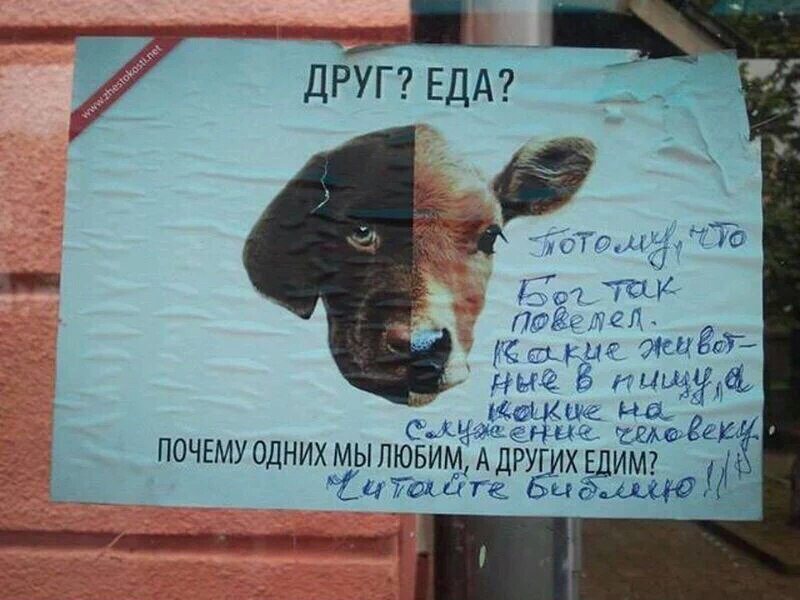 www.zhestokosti.net
ДРУГ? ЕДА?
Потому, что
Бог так
повелел.
Какие живот-
ные в пищу, а
какие на
служение человеку.
ПОЧЕМУ ОДНИХ МЫ ЛЮБИМ, А ДРУГИХ ЕДИМ?
Читайте Библию!!!